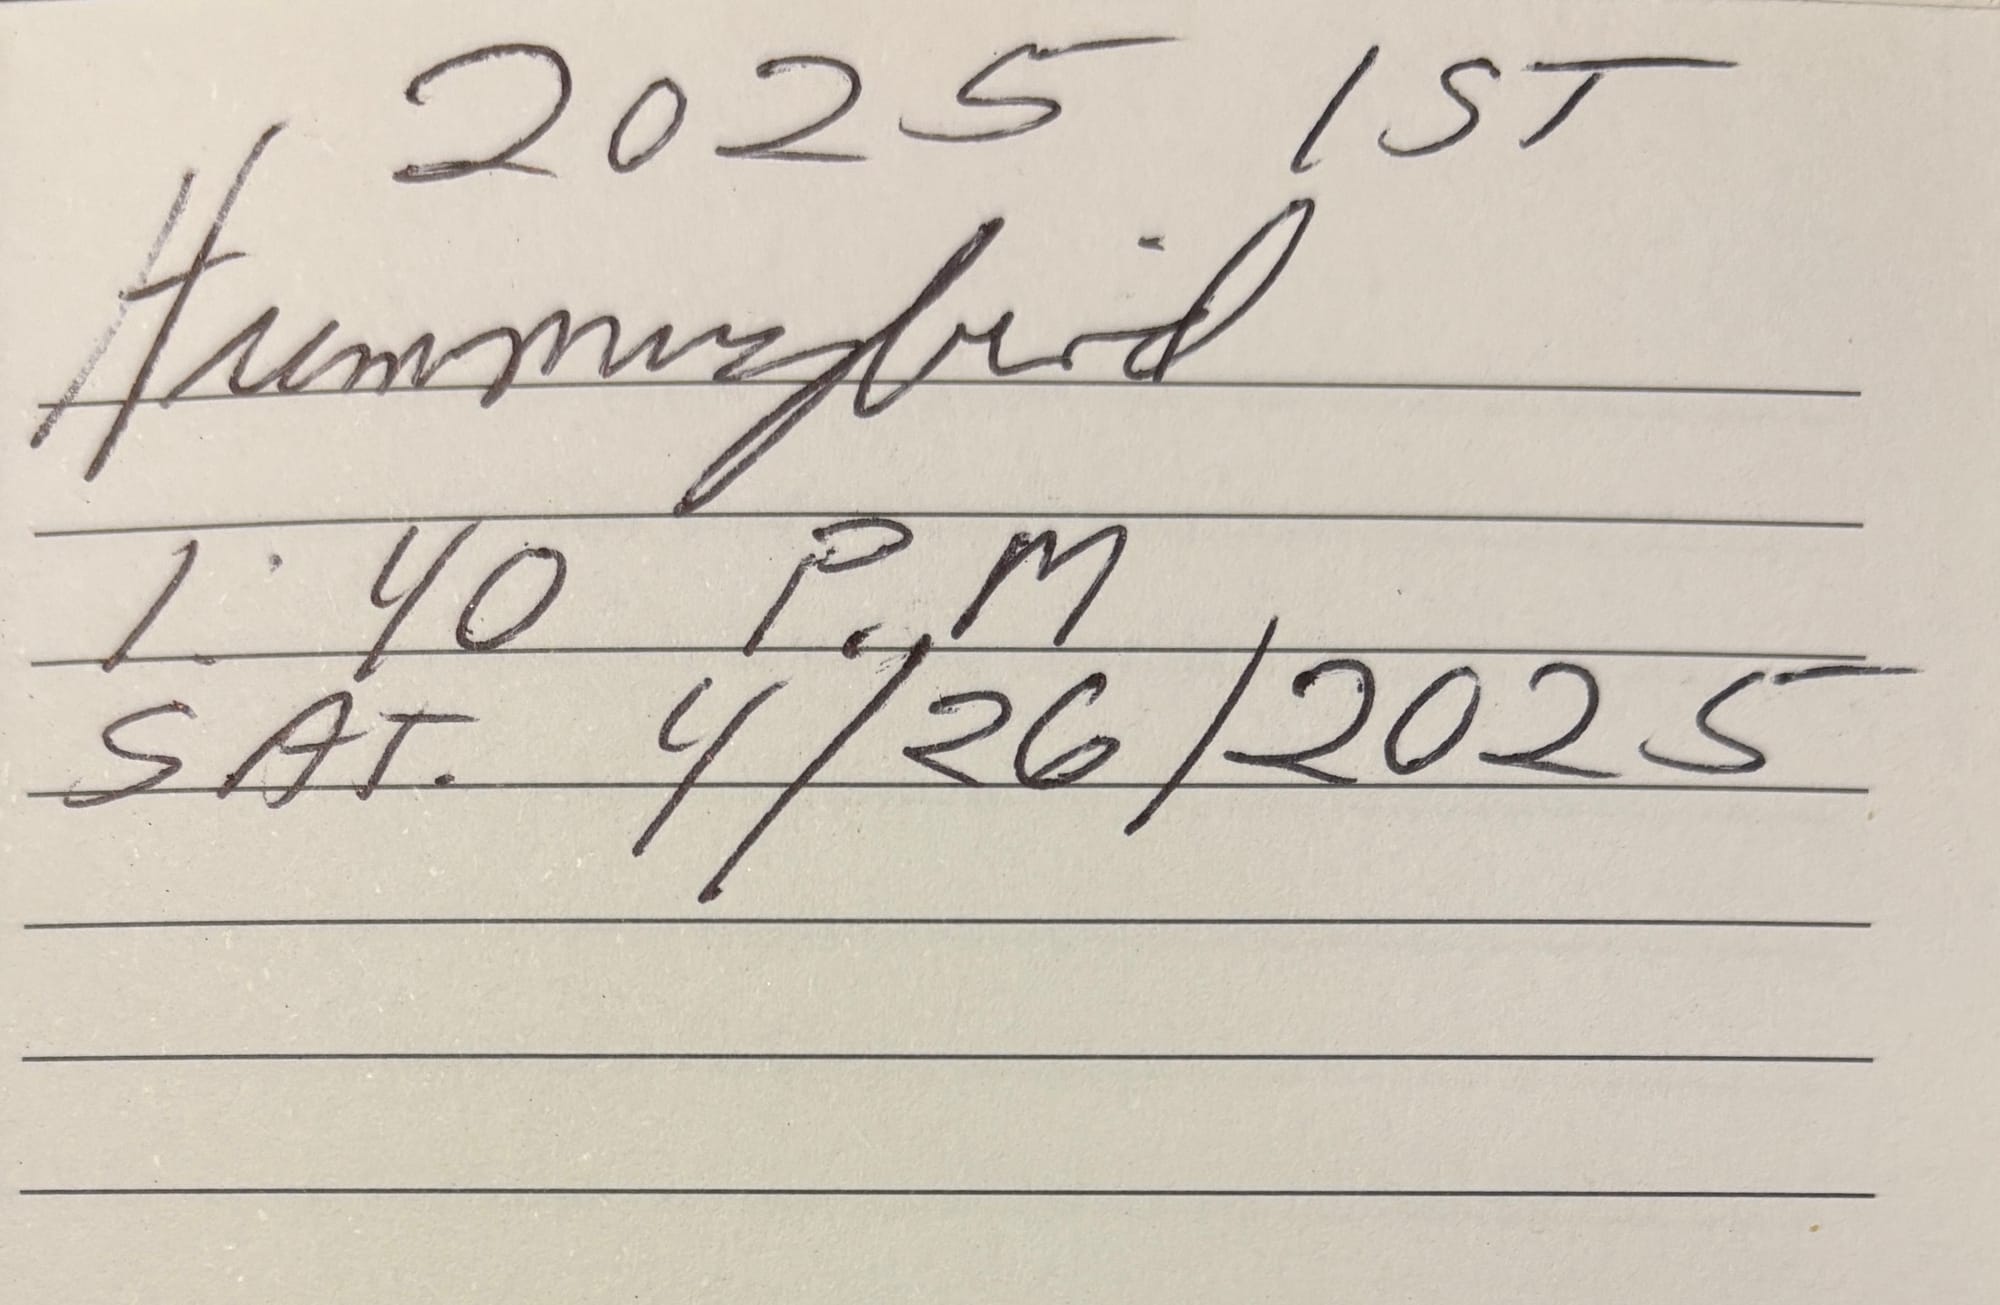 2025 1ST
Hummingbird
1:40 P.M
SAT. 4/26/2025